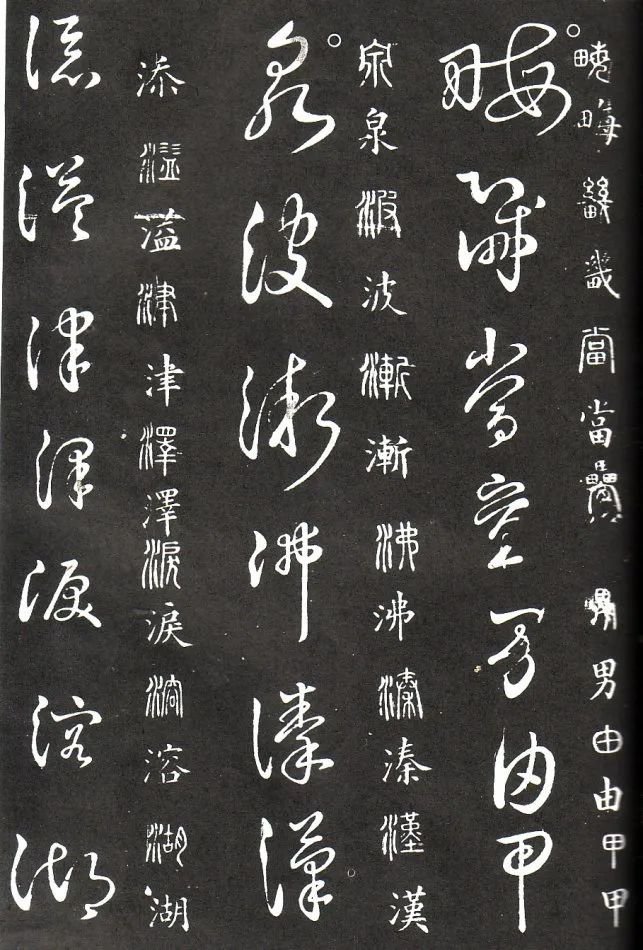 畮畮畿畿當當疊男男由由甲甲
畮畿當疊男由甲
泉泉波波漸漸沸沸溱溱漢漢
泉波漸沸溱漢
添溢溢津津澤澤淚淚溶溶湖湖
添溢津澤淚溶湖